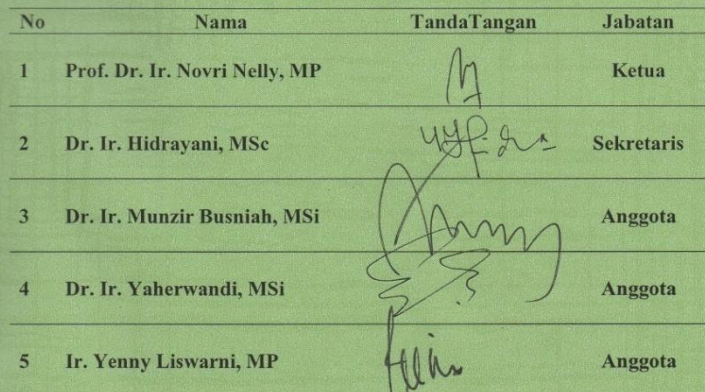 No Nama TandaTangan Jabatan
1 Prof. Dr. Ir. Novri Nelly, MP Ketua
2 Dr. Ir. Hidrayani, MSc Sekretaris
3 Dr. Ir. Munzir Busniah, MSi Anggota
4 Dr. Ir. Yaherwandi, MSi Anggota
5 Ir. Yenny Liswarni, MP Anggota